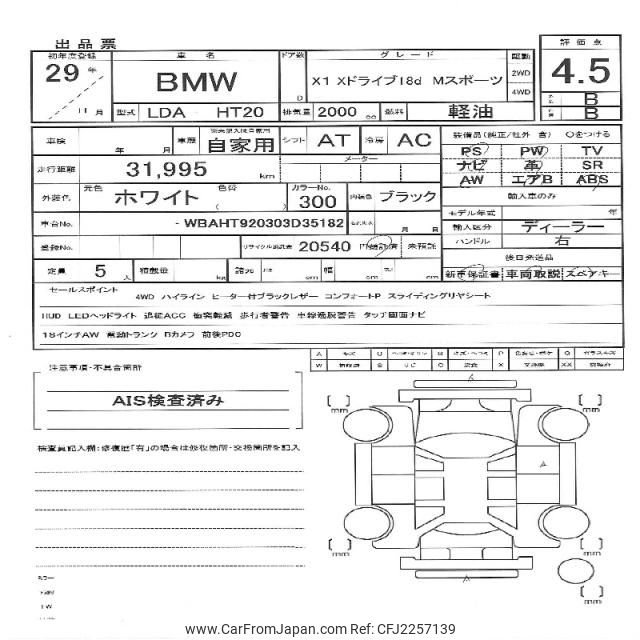 出品票
初年度登録 車名 ドア数 グレード 駆動 評価点
29年 BMW D X1 Xドライブ18d Mスポーツ 2WD 4WD 4.5
11月 型式 LDA HT20 排気量 2000 cc 燃料 軽油 B B
車検 年 月 車歴 自家用 シフト AT 冷房 AC 装備品(純正/社外 含) ○をつける
走行距離 31,995 km メーター PS PW TV
ナビ 革 SR
AW エアB ABS
外装色 元色 ホワイト 色替 カラーNo. 300 内装色 ブラック 輸入車のみ
モデル年式 年
車台No. -WBAHT920303D35182 月 日 輸入区分 ディーラー
登録No. リサイクル預託金 20540 円 預託済 未預託 ハンドル 右
後日発送品
定員 5人 積載量 kg 諸元 長 cm 幅 cm 高 cm 新車保証書 車両取説 スペアキー
セールスポイント
4WD ハイライン ヒーター付ブラックレザー コンフォートP スライディングリヤシート
HUD LEDヘッドライト 追従ACC 衝突軽減 歩行者警告 車線逸脱警告 タッチ画面ナビ
18インチAW 電動トランク Bカメラ 前後PDC
注意事項・不具合箇所
AIS検査済み
検査員記入欄:修復歴「有」の場合は修復箇所・交換箇所を記入
A
[ ] mm [ ] mm
A
[ ] mm [ ] mm
A
[ ] mm
www.CarFromJapan.com Ref: CFJ2257139